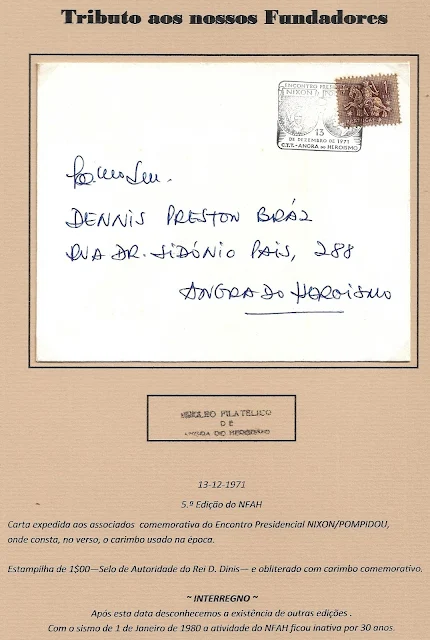 Tributo aos nossos Fundadores
ENCONTRO
NIXON
13
DE DEZEMBRO DE 1971
C.T.T. - ANGRA DO HEROÍSMO
DENNIS PRESTON BRÁZ
RUA DR. SIDÓNIO PAIS, 288
ANGRA DO HEROÍSMO
NÚCLEO FILATÉLICO
DE
ANGRA DO HEROISMO
13-12-1971
5.ª Edição do NFAH
Carta expedida aos associados comemorativa do Encontro Presidencial NIXON/POMPIDOU,
onde consta, no verso, o carimbo usado na época.
Estampilha de 1$00—Selo de Autoridade do Rei D. Dinis— e obliterado com carimbo comemorativo.
~ INTERREGNO ~
Após esta data desconhecemos a existência de outras edições .
Com o sismo de 1 de Janeiro de 1980 a atividade do NFAH ficou inativa por 30 anos.